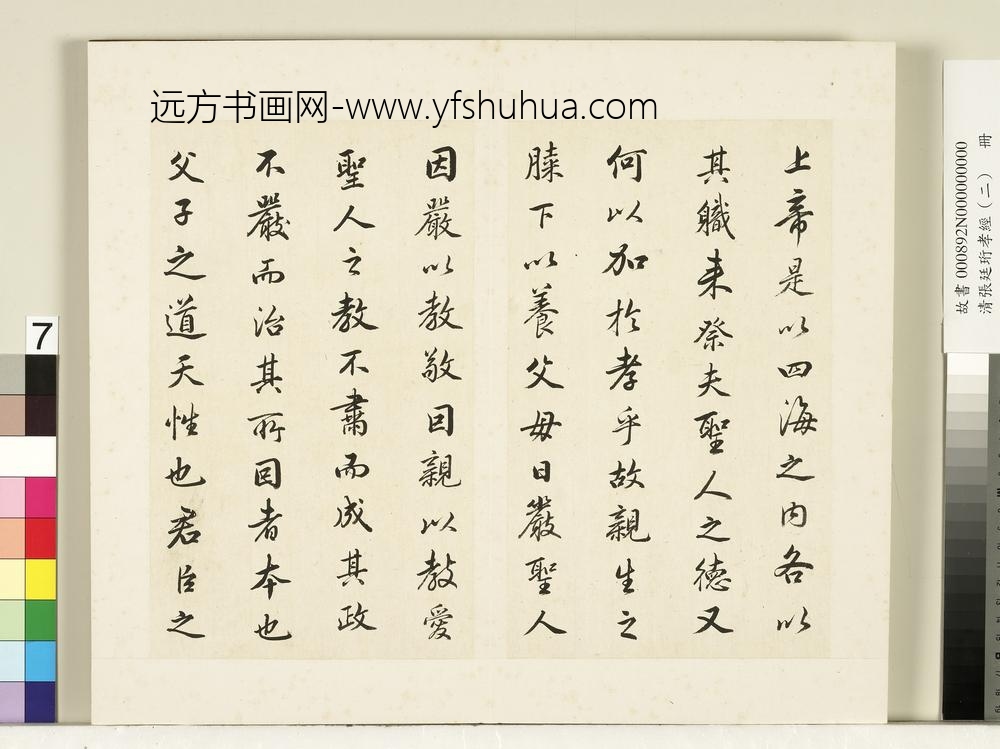 远方书画网-www.yfshuhua.com
上帝是以四海之内各以
其職来祭夫聖人之德又
何以加於孝乎故親生之
膝下以養父母日嚴聖人
因嚴以教敬因親以教愛
聖人之教不肅而成其政
不嚴而治其所因者本也
父子之道天性也君臣之
7
故書000892N000000000 冊
清張廷珩孝經(二)